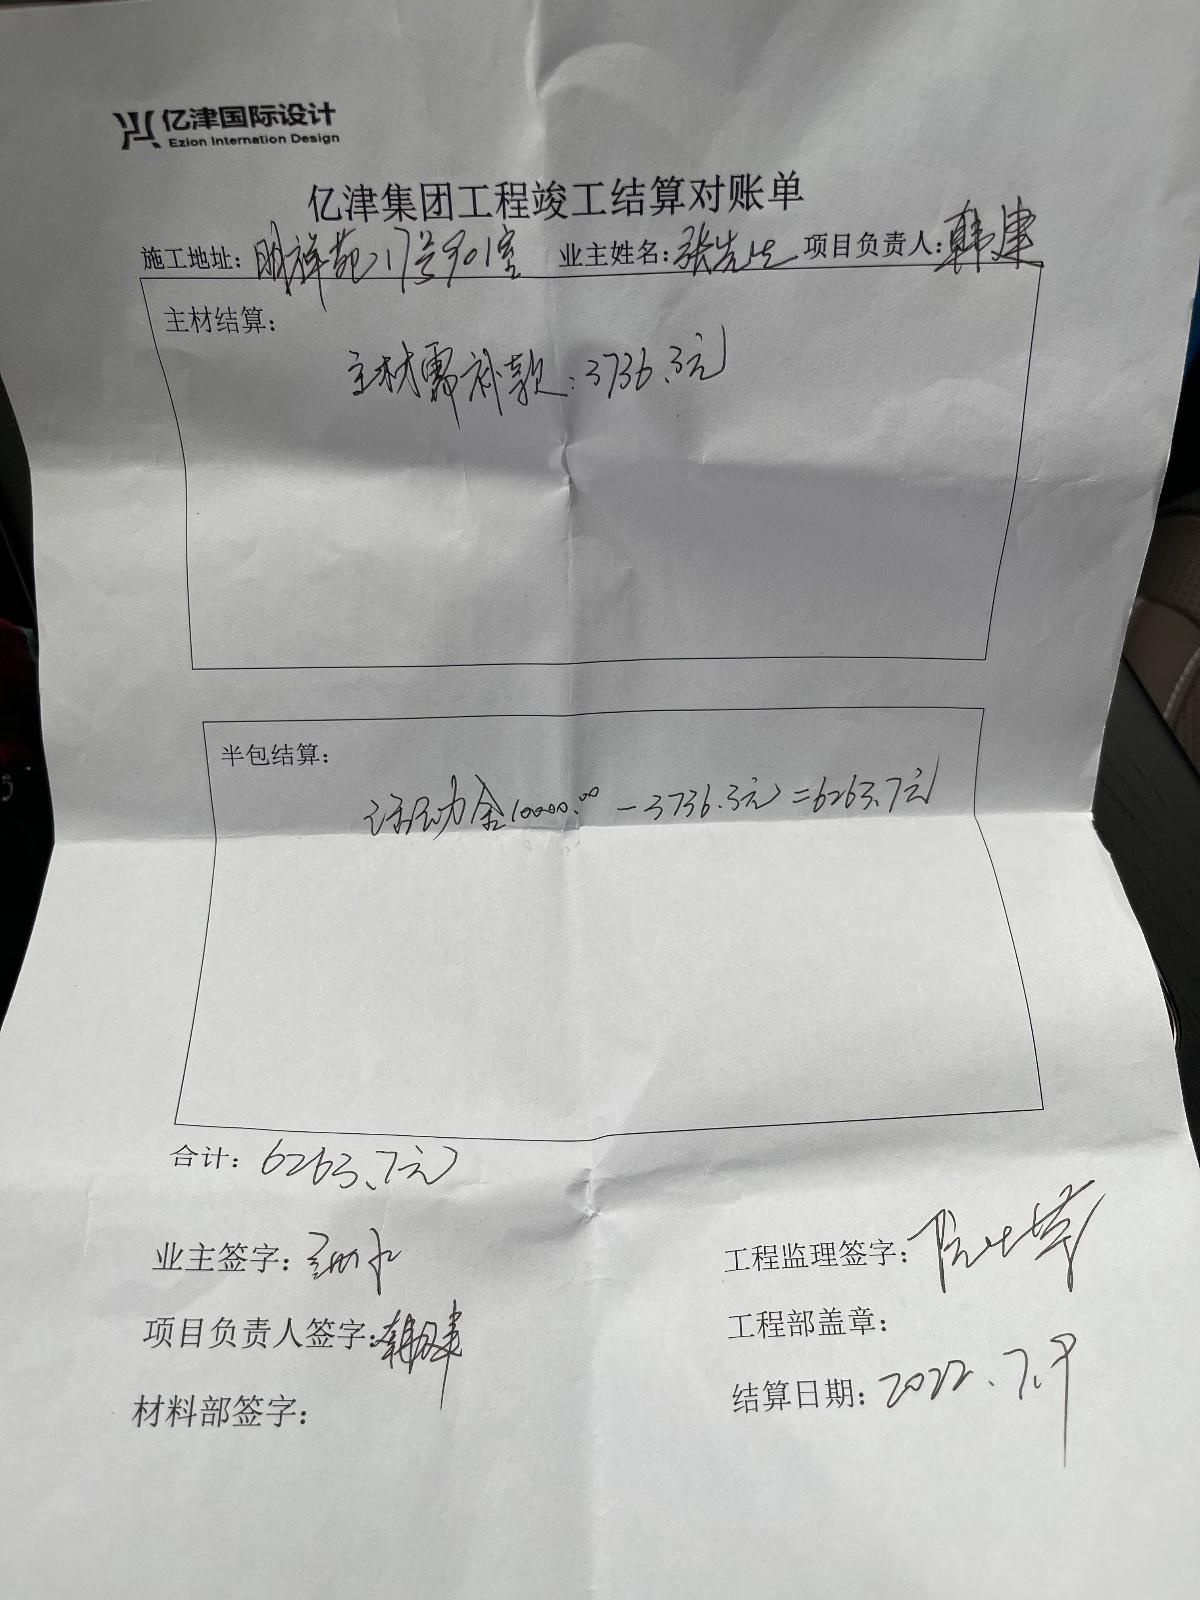 亿津国际设计
Ezion Internation Design
亿津集团工程竣工结算对账单
施工地址：明祥苑17号901室 业主姓名：张先生 项目负责人：韩建
主材结算：
主材需补款：3736.3元
半包结算：
活动金10000.00－3736.3元=6263.7元
合计：6263.7元
业主签字：
工程监理签字：
项目负责人签字：韩建
工程部盖章：
材料部签字：
结算日期：2022.7.9